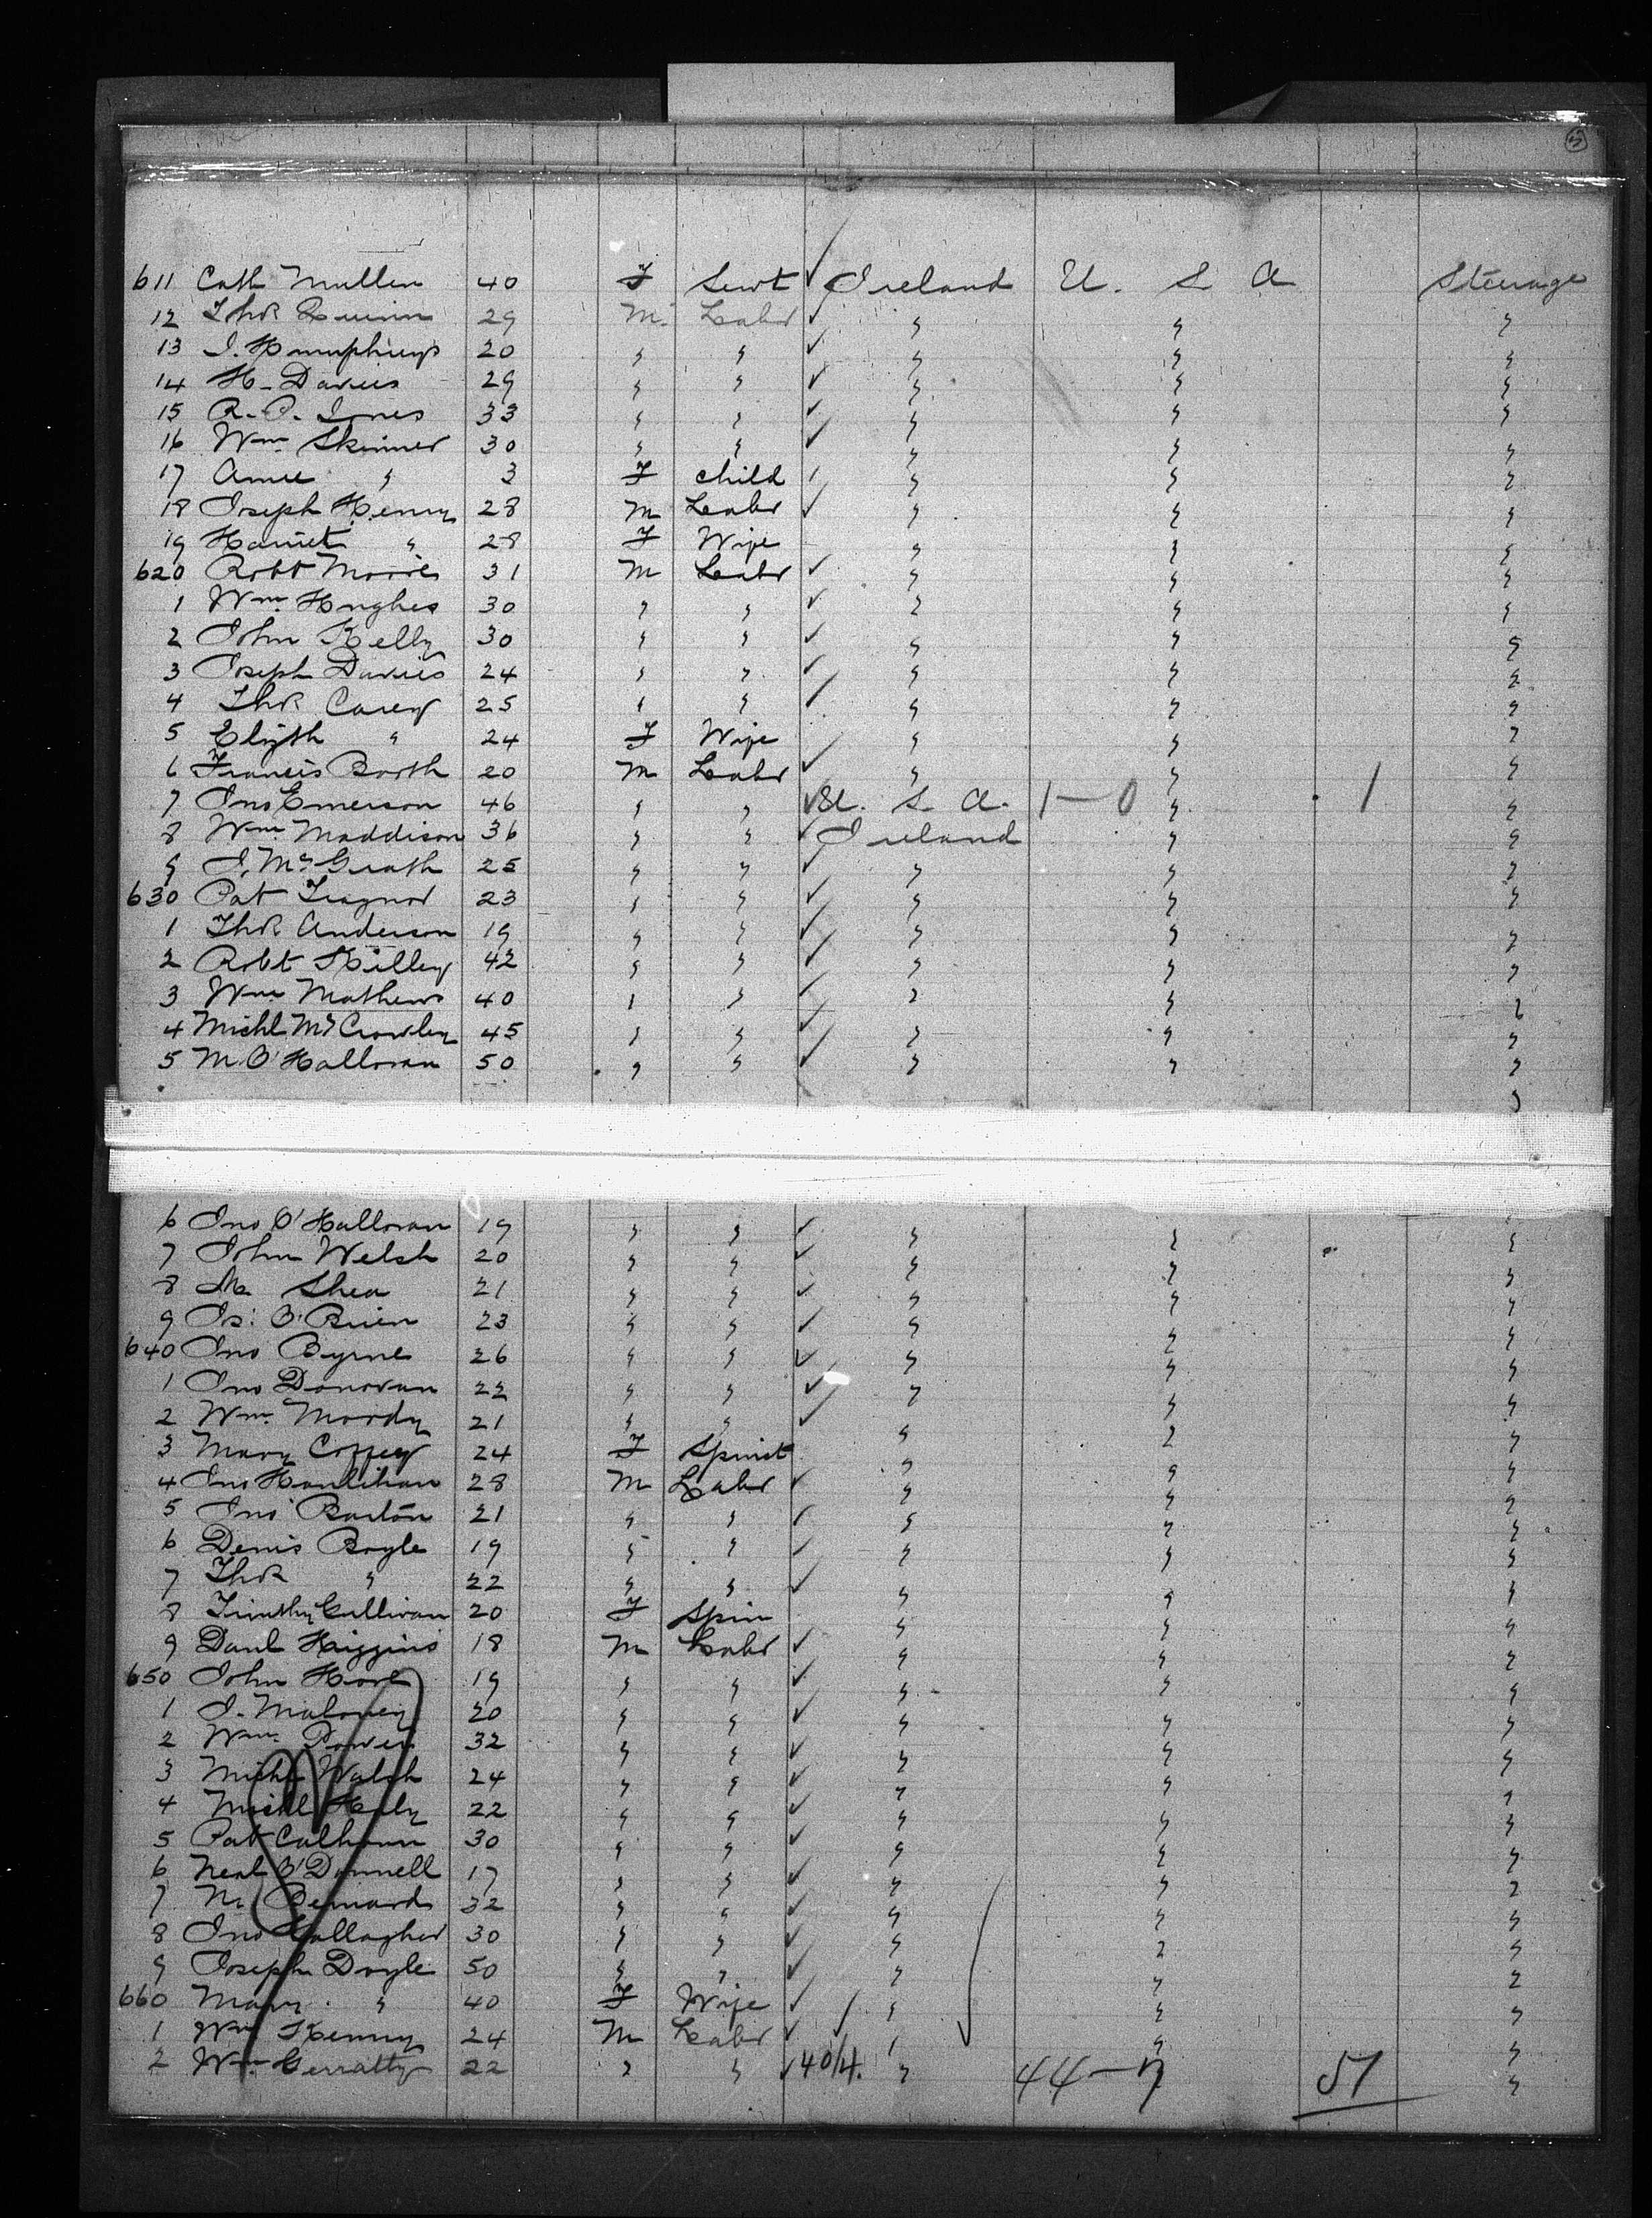 5
611 Cath Mullen 40 F Servt ✓ Ireland U. S A Steerage
12 Thos Quinn 29 M. Labr ✓ " " "
13 J. Humphreys 20 " " ✓ " " "
14 H. Davies 29 " " ✓ " " "
15 R. P. Jones 33 " " ✓ " " "
16 Wm. Skinner 30 " " ✓ " " "
17 Amee " 3 F child " " "
18 Joseph Henry 28 M Labr ✓ " " "
19 Harriet " 28 F Wife " " "
620 Robt Moore 31 M Labr ✓ " " "
1 Wm. Hughes 30 " " ✓ " " "
2 John Kelly 30 " " ✓ " " "
3 Joseph Davies 24 " " ✓ " " "
4 Thos Carey 25 " " ✓ " " "
5 Elizth " 24 F Wife " " "
6 Francis Booth 20 M Labr ✓ " " "
7 Jno Emerson 46 " " ✓ U. S. A. 1-0 " 1 "
8 Wm Maddison 36 " " ✓ Ireland " "
9 J. McGrath 25 " " ✓ " " "
630 Pat Traynor 23 " " ✓ " " "
1 Thos Anderson 19 " " ✓ " " "
2 Robt Killey 42 " " ✓ " " "
3 Wm Mathews 40 " " ✓ " " "
4 Michl McCrowley 45 " " ✓ " " "
5 M. O'Halloran 50 " " ✓ " " "
"
6 Jno O'Halloran 19 " " ✓ " " "
7 John Welsh 20 " " ✓ " " "
8 M. Shea 21 " " ✓ " " "
9 Js: O'Brien 23 " " ✓ " " "
640 Jno Byrne 26 " " ✓ " " "
1 Jno Donovan 22 " " ✓ " " "
2 Wm. Moody 21 " " ✓ " " "
3 Mary Coffey 24 F Spinst " " "
4 Jno Houlihan 28 M Labr ✓ " " "
5 Jno Barton 21 " " ✓ " " "
6 Denis Boyle 19 " " ✓ " " "
7 Thos " 22 " " ✓ " " "
8 Timothy Cullivan 20 F Spin " " "
9 Danl Higgins 18 M Labr ✓ " " "
650 John Hore 19 " " ✓ " " "
1 J. Maloney 20 " " ✓ " " "
2 Wm. Power 32 " " ✓ " " "
3 Michl Walsh 24 " " ✓ " " "
4 Michl Haly 22 " " ✓ " " "
5 Pat Calhoun 30 " " ✓ " " "
6 Neal O'Donnell 17 " " ✓ " " "
7 M. Bernard 32 " " ✓ " " "
8 Jno Gallagher 30 " " ✓ " " "
9 Joseph Doyle 50 " " ✓ " " "
660 Mary " 40 F Wife ✓ " " "
1 Wm Kenny 24 M Labr ✓ " " "
2 Wm Gerratty 22 " " ✓ 40/4. " " "
44-7 51